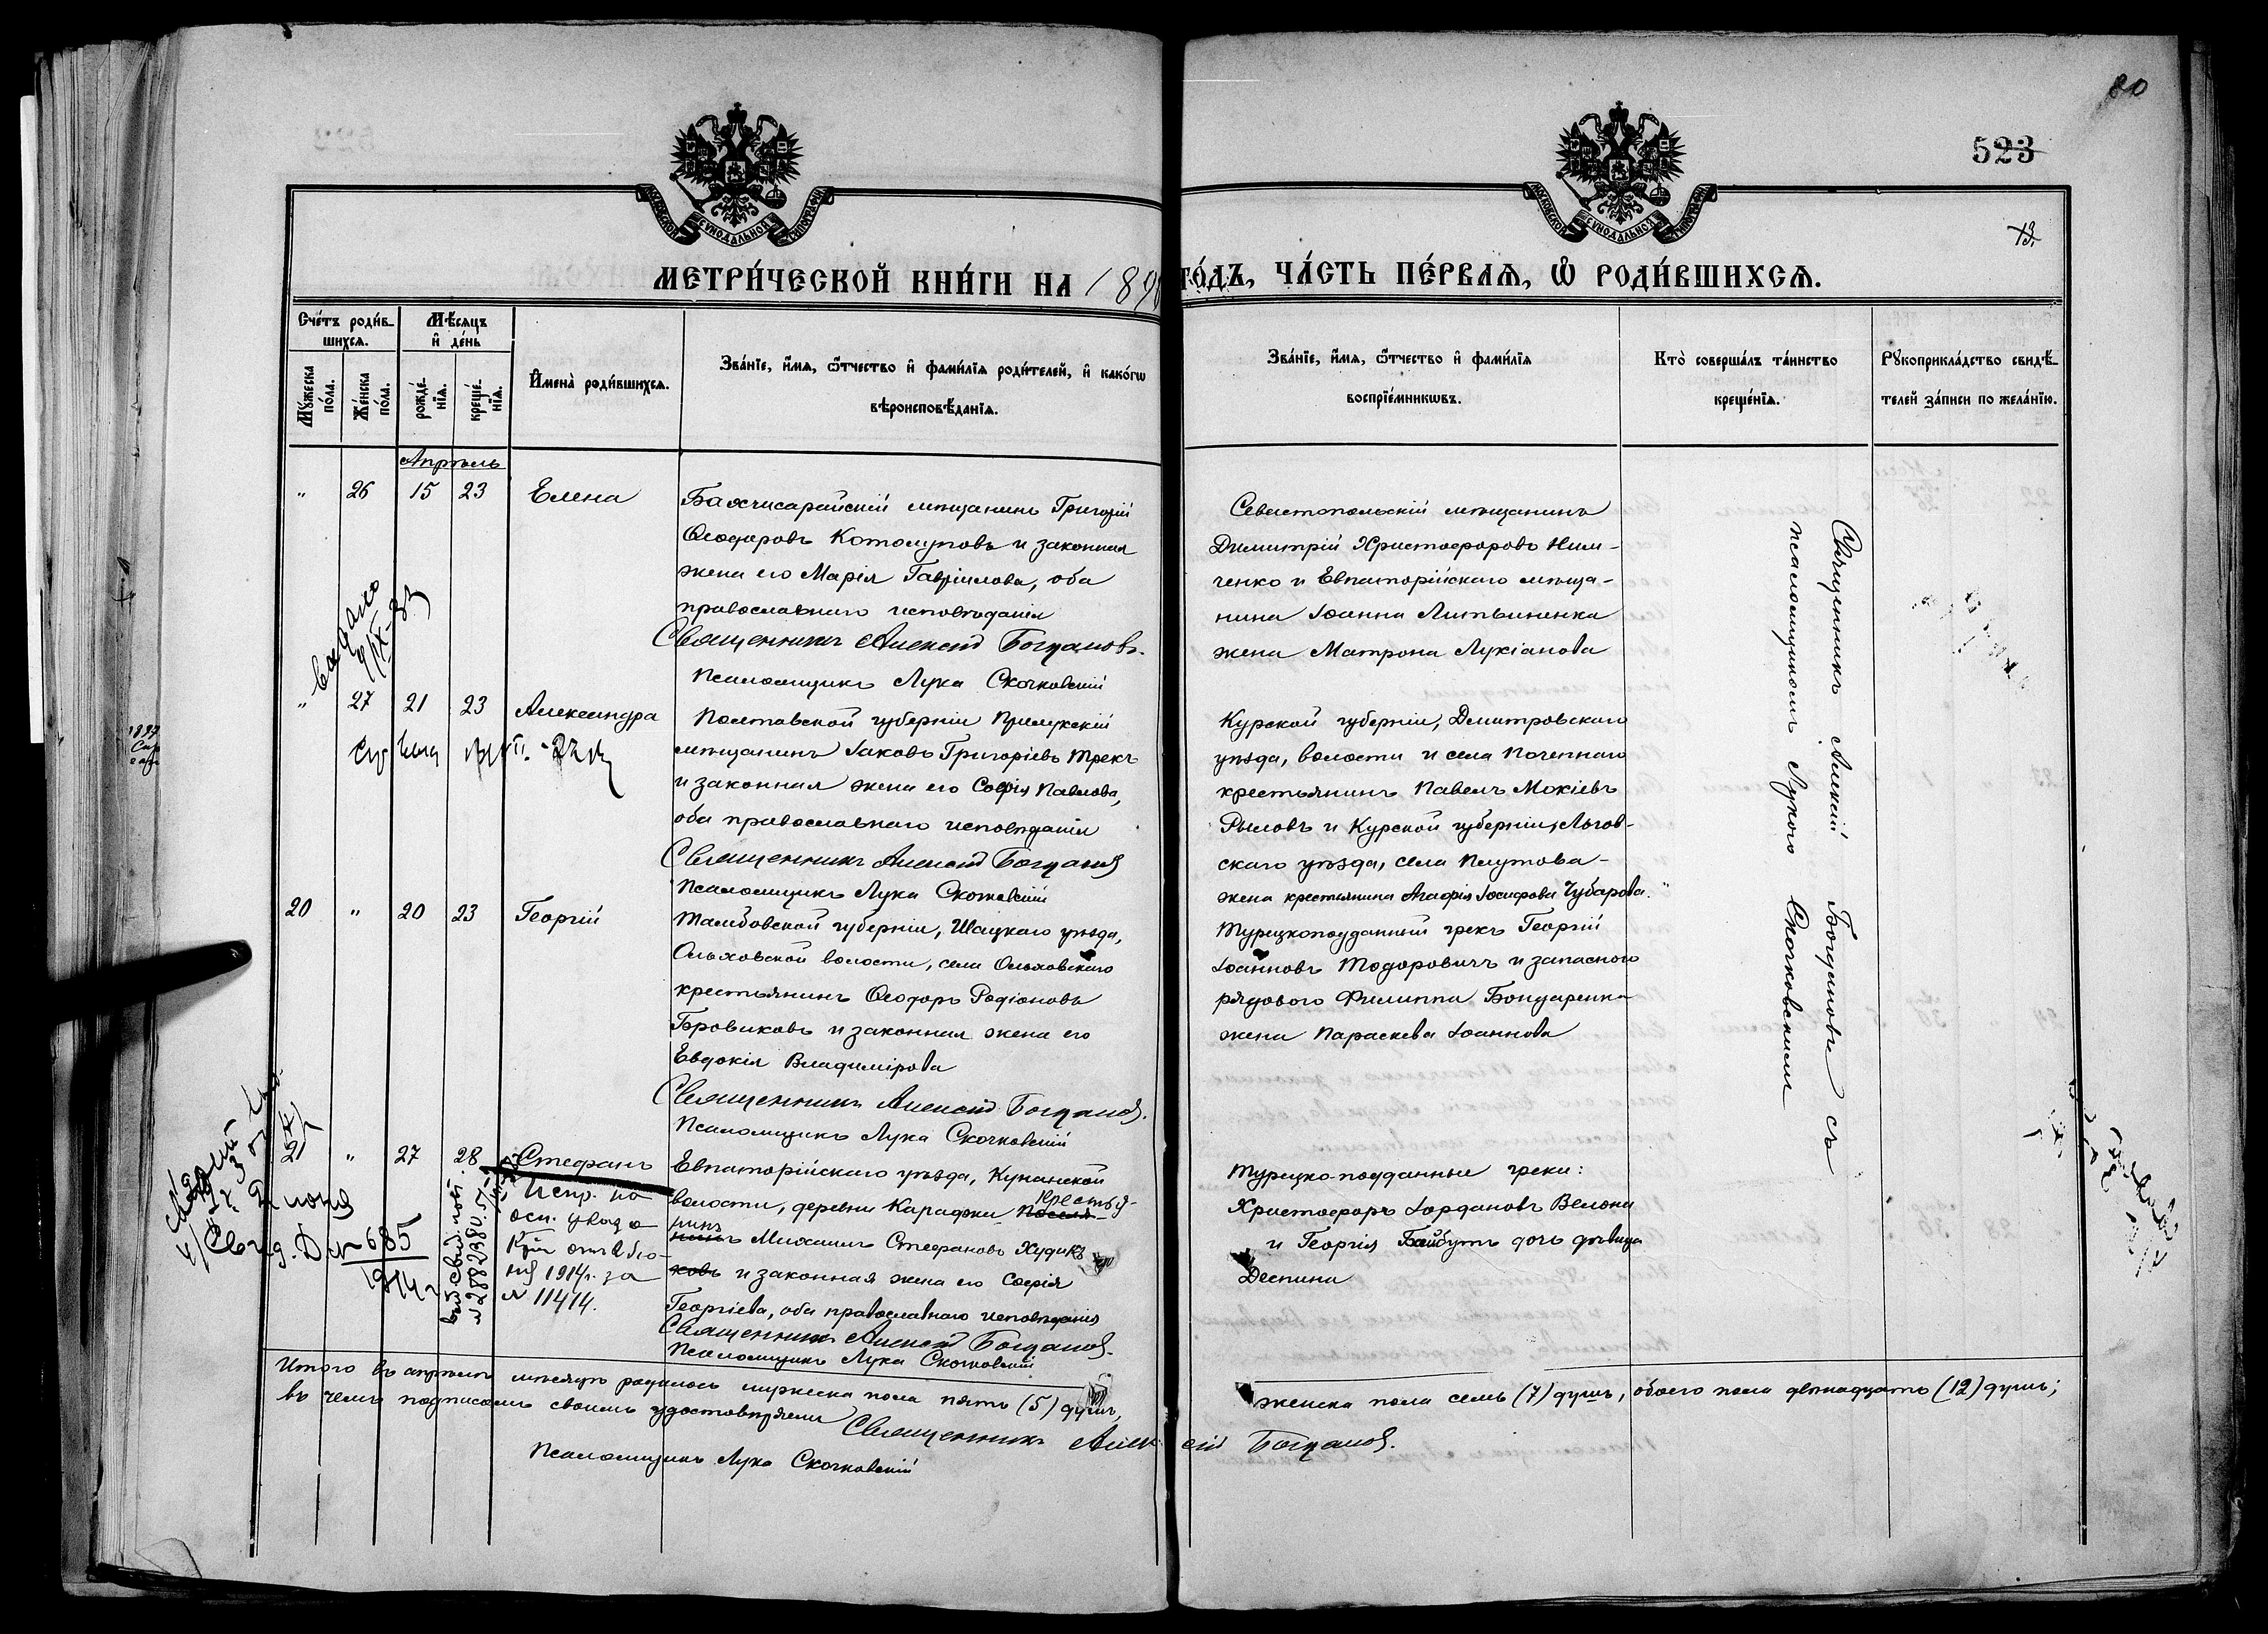 80
523
13.
МОСКОВСКОЙ СѴНОДАЛЬНОЙ ТИПОГРАФІИ
МОСКОВСКОЙ СѴНОДАЛЬНОЙ ТИПОГРАФІИ
МЕТРИ́ЧЕСКОЙ КНИ́ГИ НА 189 ГО́ДЪ, ЧА́СТЬ ПЕ́РВАЯ, Ѡ РОДИ́ВШИХСЯ.
Сче́тъ роди́в-
шихся.
Мѣ́сяцъ
и҆ де́нь
Му́жеска
по́ла.
Же́нска
по́ла.
рожде́-
нїя.
креще́-
нїя.
И҆мена̀ роди́вшихся.
Зва́нїе, и҆́мя, ѻ҆́тчество и҆ фами́лїя роди́телей, и҆ како́гѡ
вѣроисповѣ́данїя.
Зва́нїе, и҆́мя, ѻ҆́тчество и҆ фами́лїя
воспрїе́мникѡвъ.
Кто̀ соверша́лъ та́инство
креще́нїя.
Рꙋкоприкла́дство свидѣ́-
телей за́писи по жела́нїю.
Апрѣль
" 26 15 23 Елена
Бахчисарайскій мѣщанинъ Григорій
Ѳеодоровъ Котолуповъ и законная
жена его Марія Гавріилова, оба
православнаго исповѣданія
Священникъ Алексій Богдановъ.
Псаломщикъ Лука Скочковскій
Севастопольскій мѣщанинъ
Димитрій Христофоровъ Ним-
ченко и Евпаторійскаго мѣща-
нина Іоанна Литвиненка
жена Матрона Лукіанова
Священникъ Алексій Богдановъ съ
псаломщикомъ Лукою Скочковскимъ
Выдано
" 27 21 23 Александра
Полтавской губерніи Прилукскій
мѣщанинъ Іаковъ Григоріевъ Трекъ
и законная жена его Софія Павлова,
оба православнаго исповѣданія
Священникъ Алексій Богдановъ
Псаломщикъ Лука Скочковскій
Курской губерніи, Дмитровскаго
уѣзда, волости и села Поченнаго
крестьянинъ Павелъ Мокіевъ
Рыловъ и Курской губерніи, Льгов-
скаго уѣзда, села Плутова-
жена крестьянина Агафія Іосифова Чубарова.
20 " 20 23 Георгій
Тамбовской губерніи, Шацкаго уѣзда,
Ольховской волости, села Ольховскаго
крестьянинъ Ѳеодоръ Родіоновъ
Бровиковъ и законная жена его
Евдокія Владимірова
Священникъ Алексій Богдановъ.
Псаломщикъ Лука Скочковскій
Турецкоподданный грекъ Георгій
Іоанновъ Тодоровичъ и запасного
рядового Филиппа Бондаренка
жена Параскева Іоаннова
21 " 27 28 Стефанъ
Испр. на
осн. указа
отъ 2 Ію-
ня 1914г. за
№ 11414.
№ 685
1914 г
Евпаторійскаго уѣзда, Кунанской
волости, деревни Караджи поселя- крестья-
нинъ Михаилъ Стефановъ Худикъ
ковъ и законная жена его Софія
Георгіева, оба православнаго исповѣданія
Священникъ Алексій Богдановъ.
Псаломщикъ Лука Скочковскій
Турецко-подданные греки:
Христофоръ Іордановъ Велони
и Георгія Байбутъ дочь дѣвица
Деспина
Итого въ апрѣлѣ мѣсяцѣ родилось мужеска пола пять (5) душъ, женска пола семь (7) душъ, обоего пола двѣнадцать (12) душъ;
въ чемъ подписомъ своимъ удостовѣряемъ Священникъ Алексій Богдановъ.
Псаломщикъ Лука Скочковскій